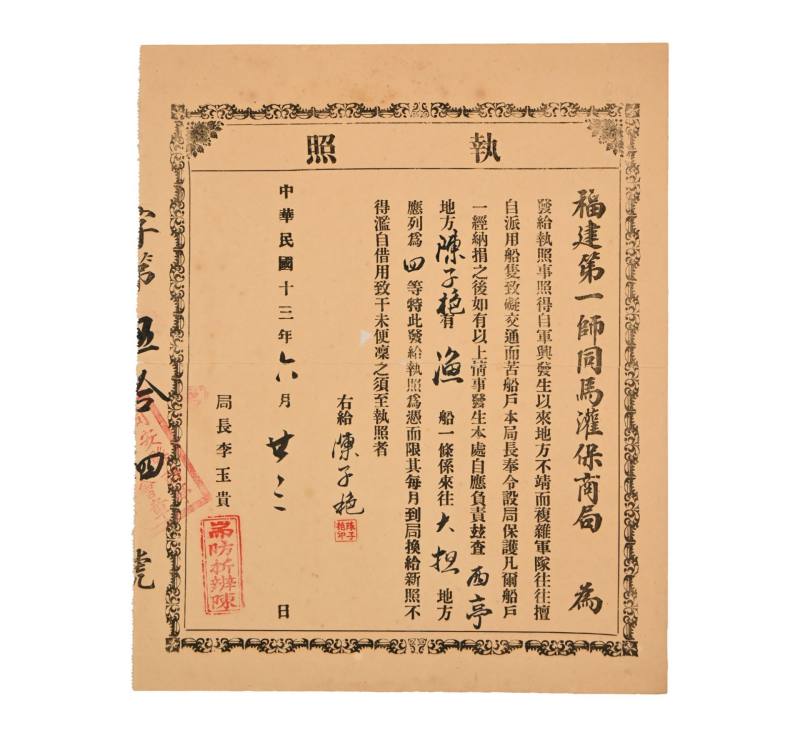 執照
福建第一師同馬灌保商局 為
發給執照事照得自軍興發生以來地方不靖而複雜軍隊往往擅
自派用船隻致礙交通而苦船戶本局長奉令設局保護凡爾船戶
一經納捐之後如有以上情事發生本處自應負責玆查 西亭
地方 陳子艳 有 漁 船一條係來往 大担 地方
應列為 四 等特此發給執照為憑而限其每月到局換給新照不
得濫自借用致干未便凜之須至執照者
右給 陳子艳
陳子艳印
中華民國十三年 六 月 廿二 日
局長李玉貴
字第 伍拾四 號